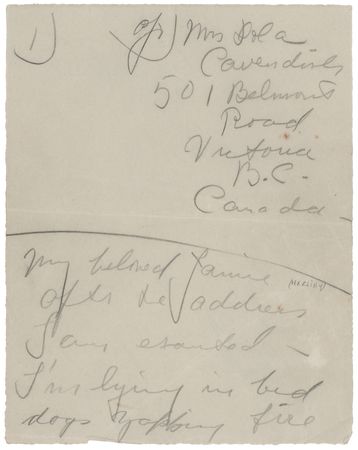 1)
c/o Mrs Lola
Cavendish
501 Belmont
Road
Victoria
B.C.
Canada -
My beloved Janice
after the address
I am exausted -
I'm lying in bed
dogs fire